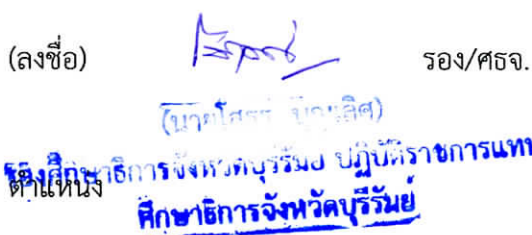 (ลงชื่อ) รอง/ศธจ.
(นายโสธร บุญเลิศ)
รองศึกษาธิการจังหวัดบุรีรัมย์ ปฏิบัติราชการแทน
ตำแหน่ง
ศึกษาธิการจังหวัดบุรีรัมย์